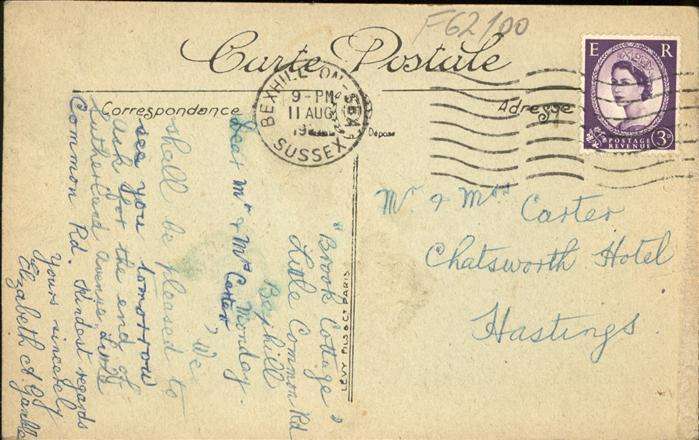 F62/00
Carte Postale
Correspondance
Adresse
BEXHILL-ON-SEA
9-PM
11 AUG
19
SUSSEX
E R
POSTAGE
REVENUE
3D
Mr & Mrs Carter
Chatsworth Hotel
Hastings.
"Brook Cottage"
Little Common Rd
Bexhill
Monday.
Dear Mr & Mrs Carter, We
shall be pleased to
see you tomorrow
ask for the end of
Sutherland Avenue Little
Common Rd. Kindest regards
Yours sincerely
Elizabeth A
LEVY FILS & Cie PARIS